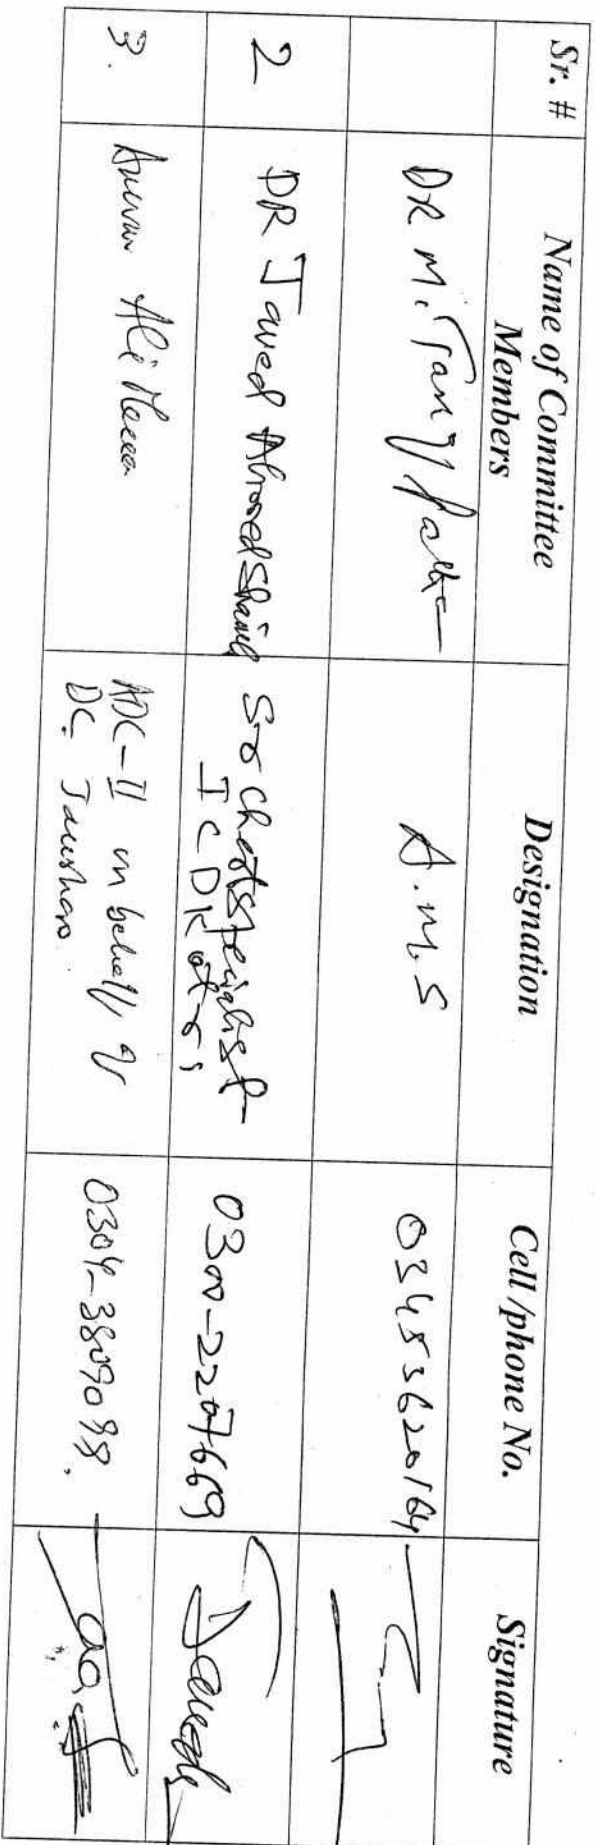 Sr. # Name of Committee Members Designation Cell/phone No. Signature
DR M. A.M.S 03453620164
2 DR Javed Ahmed Shaikh Sr Chest Specialist ICD Kotri 0300-2207669 Javed
3. Ali ADC-II on behalf of DC. Jamshoro. 0304-3809098.